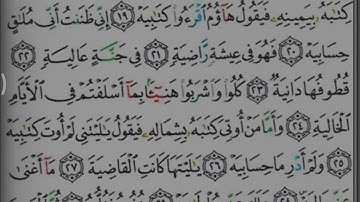 كِتَٰبَهُۥ بِيَمِينِهِۦ فَيَقُولُ هَآؤُمُ ٱقْرَءُوا۟ كِتَٰبِيَهْ ١٩ إِنِّى ظَنَنتُ أَنِّى مُلَٰقٍ
حِسَابِيَهْ ٢٠ فَهُوَ فِى عِيشَةٍ رَّاضِيَةٍ ٢١ فِى جَنَّةٍ عَالِيَةٍ ٢٢
قُطُوفُهَا دَانِيَةٌ ٢٣ كُلُوا۟ وَٱشْرَبُوا۟ هَنِيٓـًٔۢا بِمَآ أَسْلَفْتُمْ فِى ٱلْأَيَّامِ
ٱلْخَالِيَةِ ٢٤ وَأَمَّا مَنْ أُوتِىَ كِتَٰبَهُۥ بِشِمَالِهِۦ فَيَقُولُ يَٰلَيْتَنِى لَمْ أُوتَ كِتَٰبِيَهْ
٢٥ وَلَمْ أَدْرِ مَا حِسَابِيَهْ ٢٦ يَٰلَيْتَهَا كَانَتِ ٱلْقَاضِيَةَ ٢٧ مَآ أَغْنَىٰ